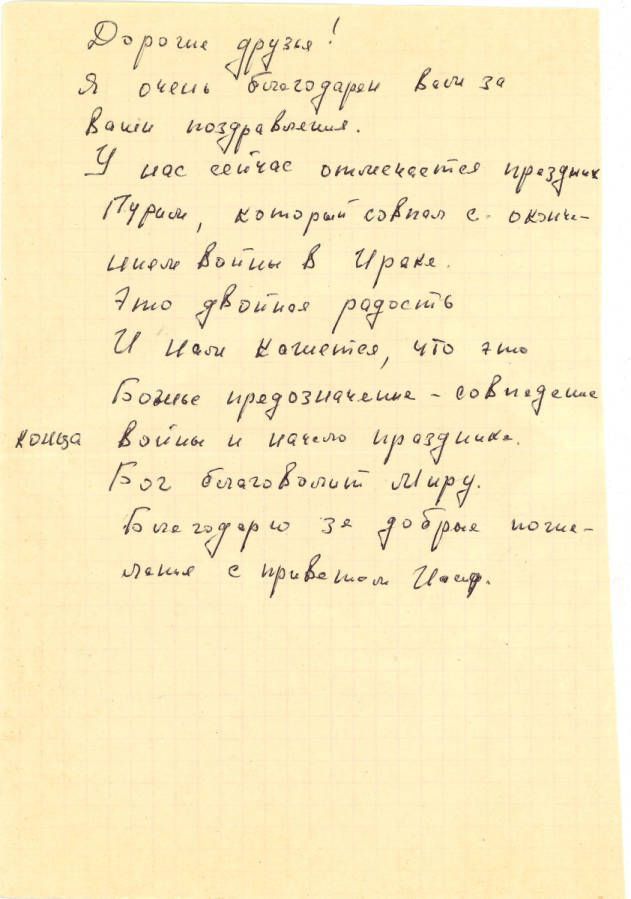 Дорогие друзья!
Я очень благодарен Вам за
Ваши поздравления.
У нас сейчас отмечается праздник
Пурим, который совпал с оконча-
нием войны в Ираке.
Это двойная радость
И нам кажется, что это
Божье предозначение - совпадение
конца войны и начало праздника.
Бог благоволит Миру.
Благодарю за добрые поже-
лания с приветом